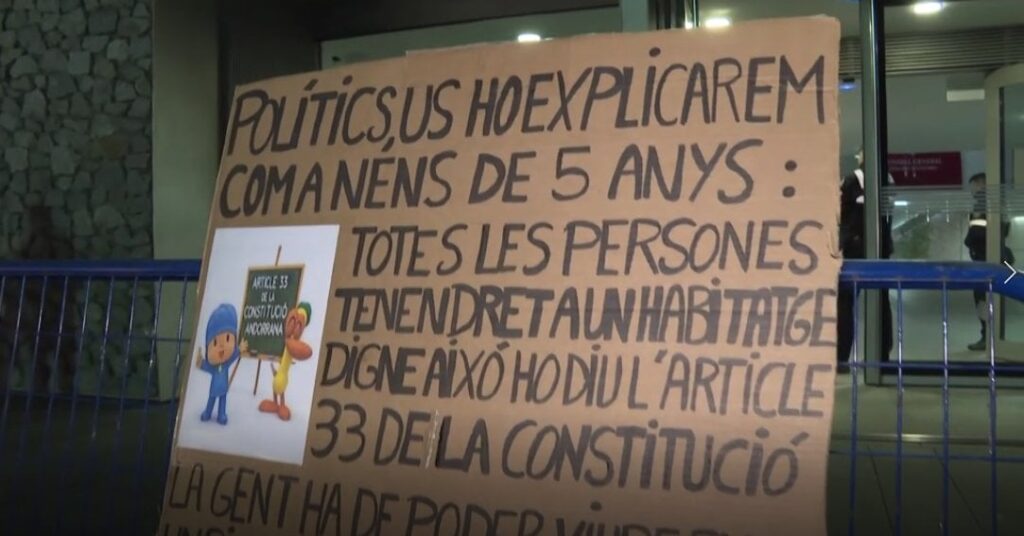 POLÍTICS, US HO EXPLICAREM
COM A NENS DE 5 ANYS :
TOTES LES PERSONES
TENEN DRET A UN HABITATGE
DIGNE AIXÓ HO DIU L'ARTICLE
33 DE LA CONSTITUCIÓ
LA GENT HA DE PODER VIURE
ARTICLE 33
DE LA
CONSTITUCIÓ
ANDORRANA
CONSELL GENERAL